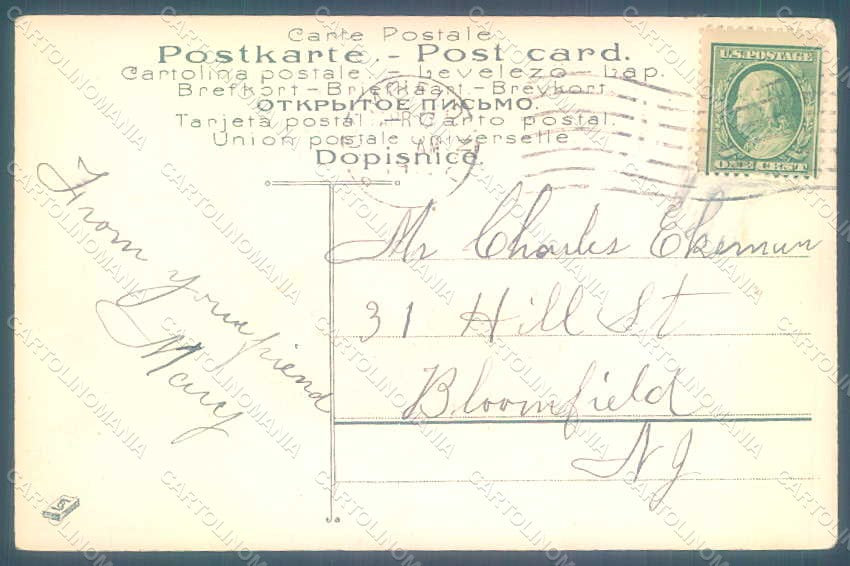 Carte Postale
Postkarte. - Post card.
Cartolina postale. - Levelezo - Lap.
Brefkort - Briefkaart - Brevkort.
ОТКРЫТОЕ ПИСЬМО.
Tarjeta postal. - Carto postal.
Union postale universelle
Dopisnice.
U.S. POSTAGE
ONE CENT
From your friend
Mary
Mr Charles Ekemun
31 Hill St
Bloomfield
NJ
CARTOLINOMANIA